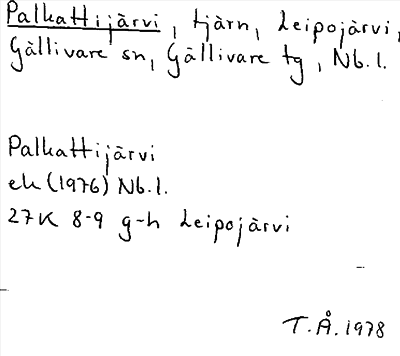 Palkattijärvi, tjärn, Leipojärvi,
Gällivare sn, Gällivare tg, Nb.l.
Palkattijärvi
ek (1976) Nb.l.
27K 8-9 g-h Leipojärvi
T.Å. 1978